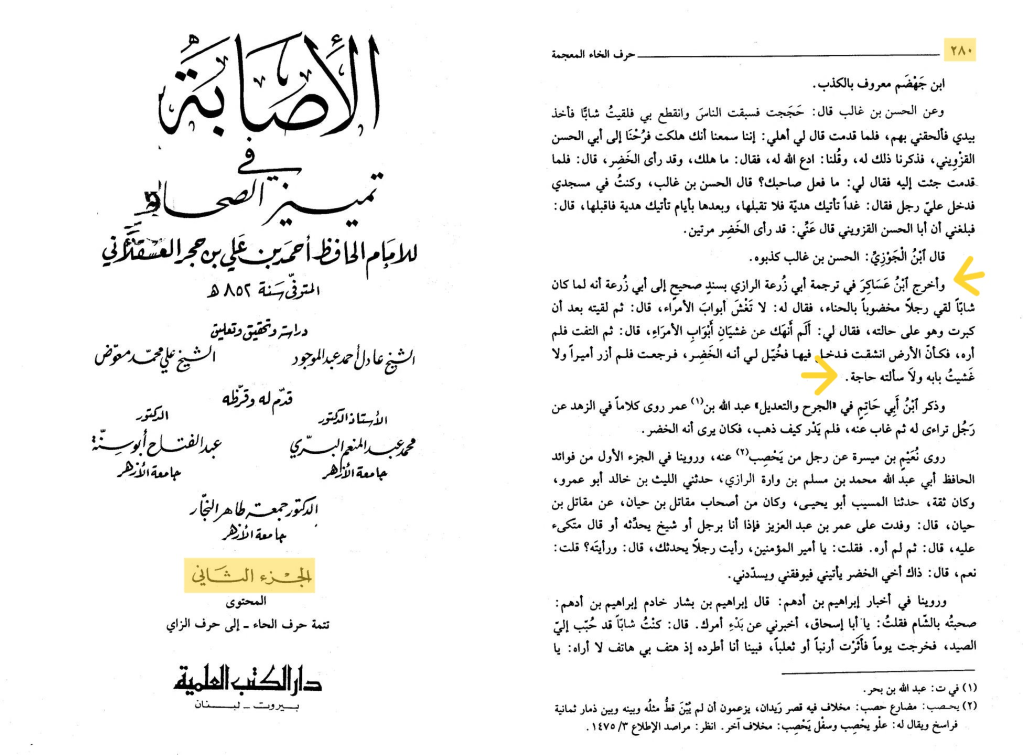 الأصابة
في
تمييز الصحابة
للإمام الحافظ أحمد بن علي بن حجر العسقلاني
المتوفى سنة ٨٥٢ هـ
دراسة وتحقيق وتعليق
الشيخ عادل أحمد عبد الموجود الشيخ علي محمد معوض
قدم له وقرظه
الأستاذ الدكتور الدكتور
محمد عبد المنعم البري عبد الفتاح أبو سنة
جامعة الأزهر جامعة الأزهر
الدكتور جمعة طاهر النجار
جامعة الأزهر
الجزء الثاني
المحتوى
تتمة حرف الحاء ـ إلى حرف الزاي
دار الكتب العلمية
بيروت ـ لبنان
٢٨٠ حرف الخاء المعجمة
ابن جَهْضَم معروف بالكذب.
وعن الحسن بن غالب قال: حَجَجت فسبقت الناسَ وانقطع بي فلقيتُ شابًّا فأخذ
بيدي فألحقني بهم، فلما قدمت قال لي أهلي: إننا سمعنا أنك هلكت فرُحْنَا إلى أبي الحسن
القزْوِيني، فذكرنا ذلك له، وقُلنا: ادع الله له، فقال: ما هلك، وقد رأى الخَضِر، قال: فلما
قدمت جئت إليه فقال لي: ما فعل صاحبك؟ قال الحسن بن غالب، وكنتُ في مسجدي
فدخل عليّ رجل فقال: غداً تأتيك هديّة فلا تقبلها، وبعدها بأيام تأتيك هدية فاقبلها، قال:
فبلغني أن أبا الحسن القزويني قال عَنِّي: قد رأى الخَضِر مرتين.
قال ٱبْنُ الْجَوْزِيِّ: الحسن بن غالب كذبوه.
وأخرج ٱبْنُ عَسَاكِرَ في ترجمة أبي زُرعة الرازي بسندٍ صحيح إلى أبي زُرعة أنه لما كان
شابّاً لقي رجلاً مخضوباً بالحناء، فقال له: لا تَغْشَ أبوابَ الأمرَاء، قال: ثم لقيته بعد أن
كبرت وهو على حالته، فقال لي: أَلَم أَنهَك عن غشيَانِ أَبْوَابِ الأمرَاءِ، قال: ثم التفت فلم
أره، فكأنّ الأرض انشقت فدخل فيها فخُيّل لي أنه الخَضِر، فرجعت فلم أزر أميراً ولا
غَشيتُ بابه ولاَ سألته حاجة.
وذكر ٱبْنُ أَبِي حَاتِمٍ في «الجرح والتعديل» عبد الله بن(١) عمر روى كلاماً في الزهد عن
رَجُل تراءى له ثم غاب عنه، فلم يَدْر كيف ذهب، فكان يرى أنه الخضر.
روى نُعَيْم بن ميسرة عن رجل من يَحْصِب(٢) عنه، وروينا في الجزء الأول من فوائد
الحافظ أبي عبد الله محمد بن مسلم بن وارة الرازي، حدثني الليث بن خالد أبو عمرو،
وكان ثقة، حدثنا المسيب أبو يحيى، وكان من أصحاب مقاتل بن حيان، عن مقاتل بن
حيان، قال: وفدت على عمر بن عبد العزيز فإذا أنا برجل أو شيخ يحدّثه أو قال متكىء
عليه، قال: ثم لم أره. فقلت: يا أمير المؤمنين، رأيت رجلاً يحدثك، قال: ورأيتَه؟ قلت:
نعم، قال: ذاك أخي الخضر يأتيني فيوفقني ويسدّدني.
وروينا في أخبار إبراهيم بن أدهم: قال إبراهيم بن بشار خادم إبراهيم بن أدهم:
صحبتُه بالشّام فقلتُ: يا أبا إسحاق، أخبرني عن بَدْءِ أمرك. قال: كنْتُ شابّاً قد حُبّب إليّ
الصيد، فخرجت يوماً فأَثَرْت أرنباً أو ثعلباً، فبينا أنا أطرده إذ هتف بي هاتف لا أراه: يا
(١) في ت: عبد الله بن بحر.
(٢) يحصب: مضارع حصب: مخلاف فيه قصر رَيدان، يزعمون أن لم يُبْنَ قطُّ مثلُه وبينه وبين ذمار ثمانية
فراسخ ويقال له: علْو يحْصِب وسفْل يَحْصِب: مخلاف آخر. انظر: مراصد الإطلاع ٣/ ١٤٧٥.